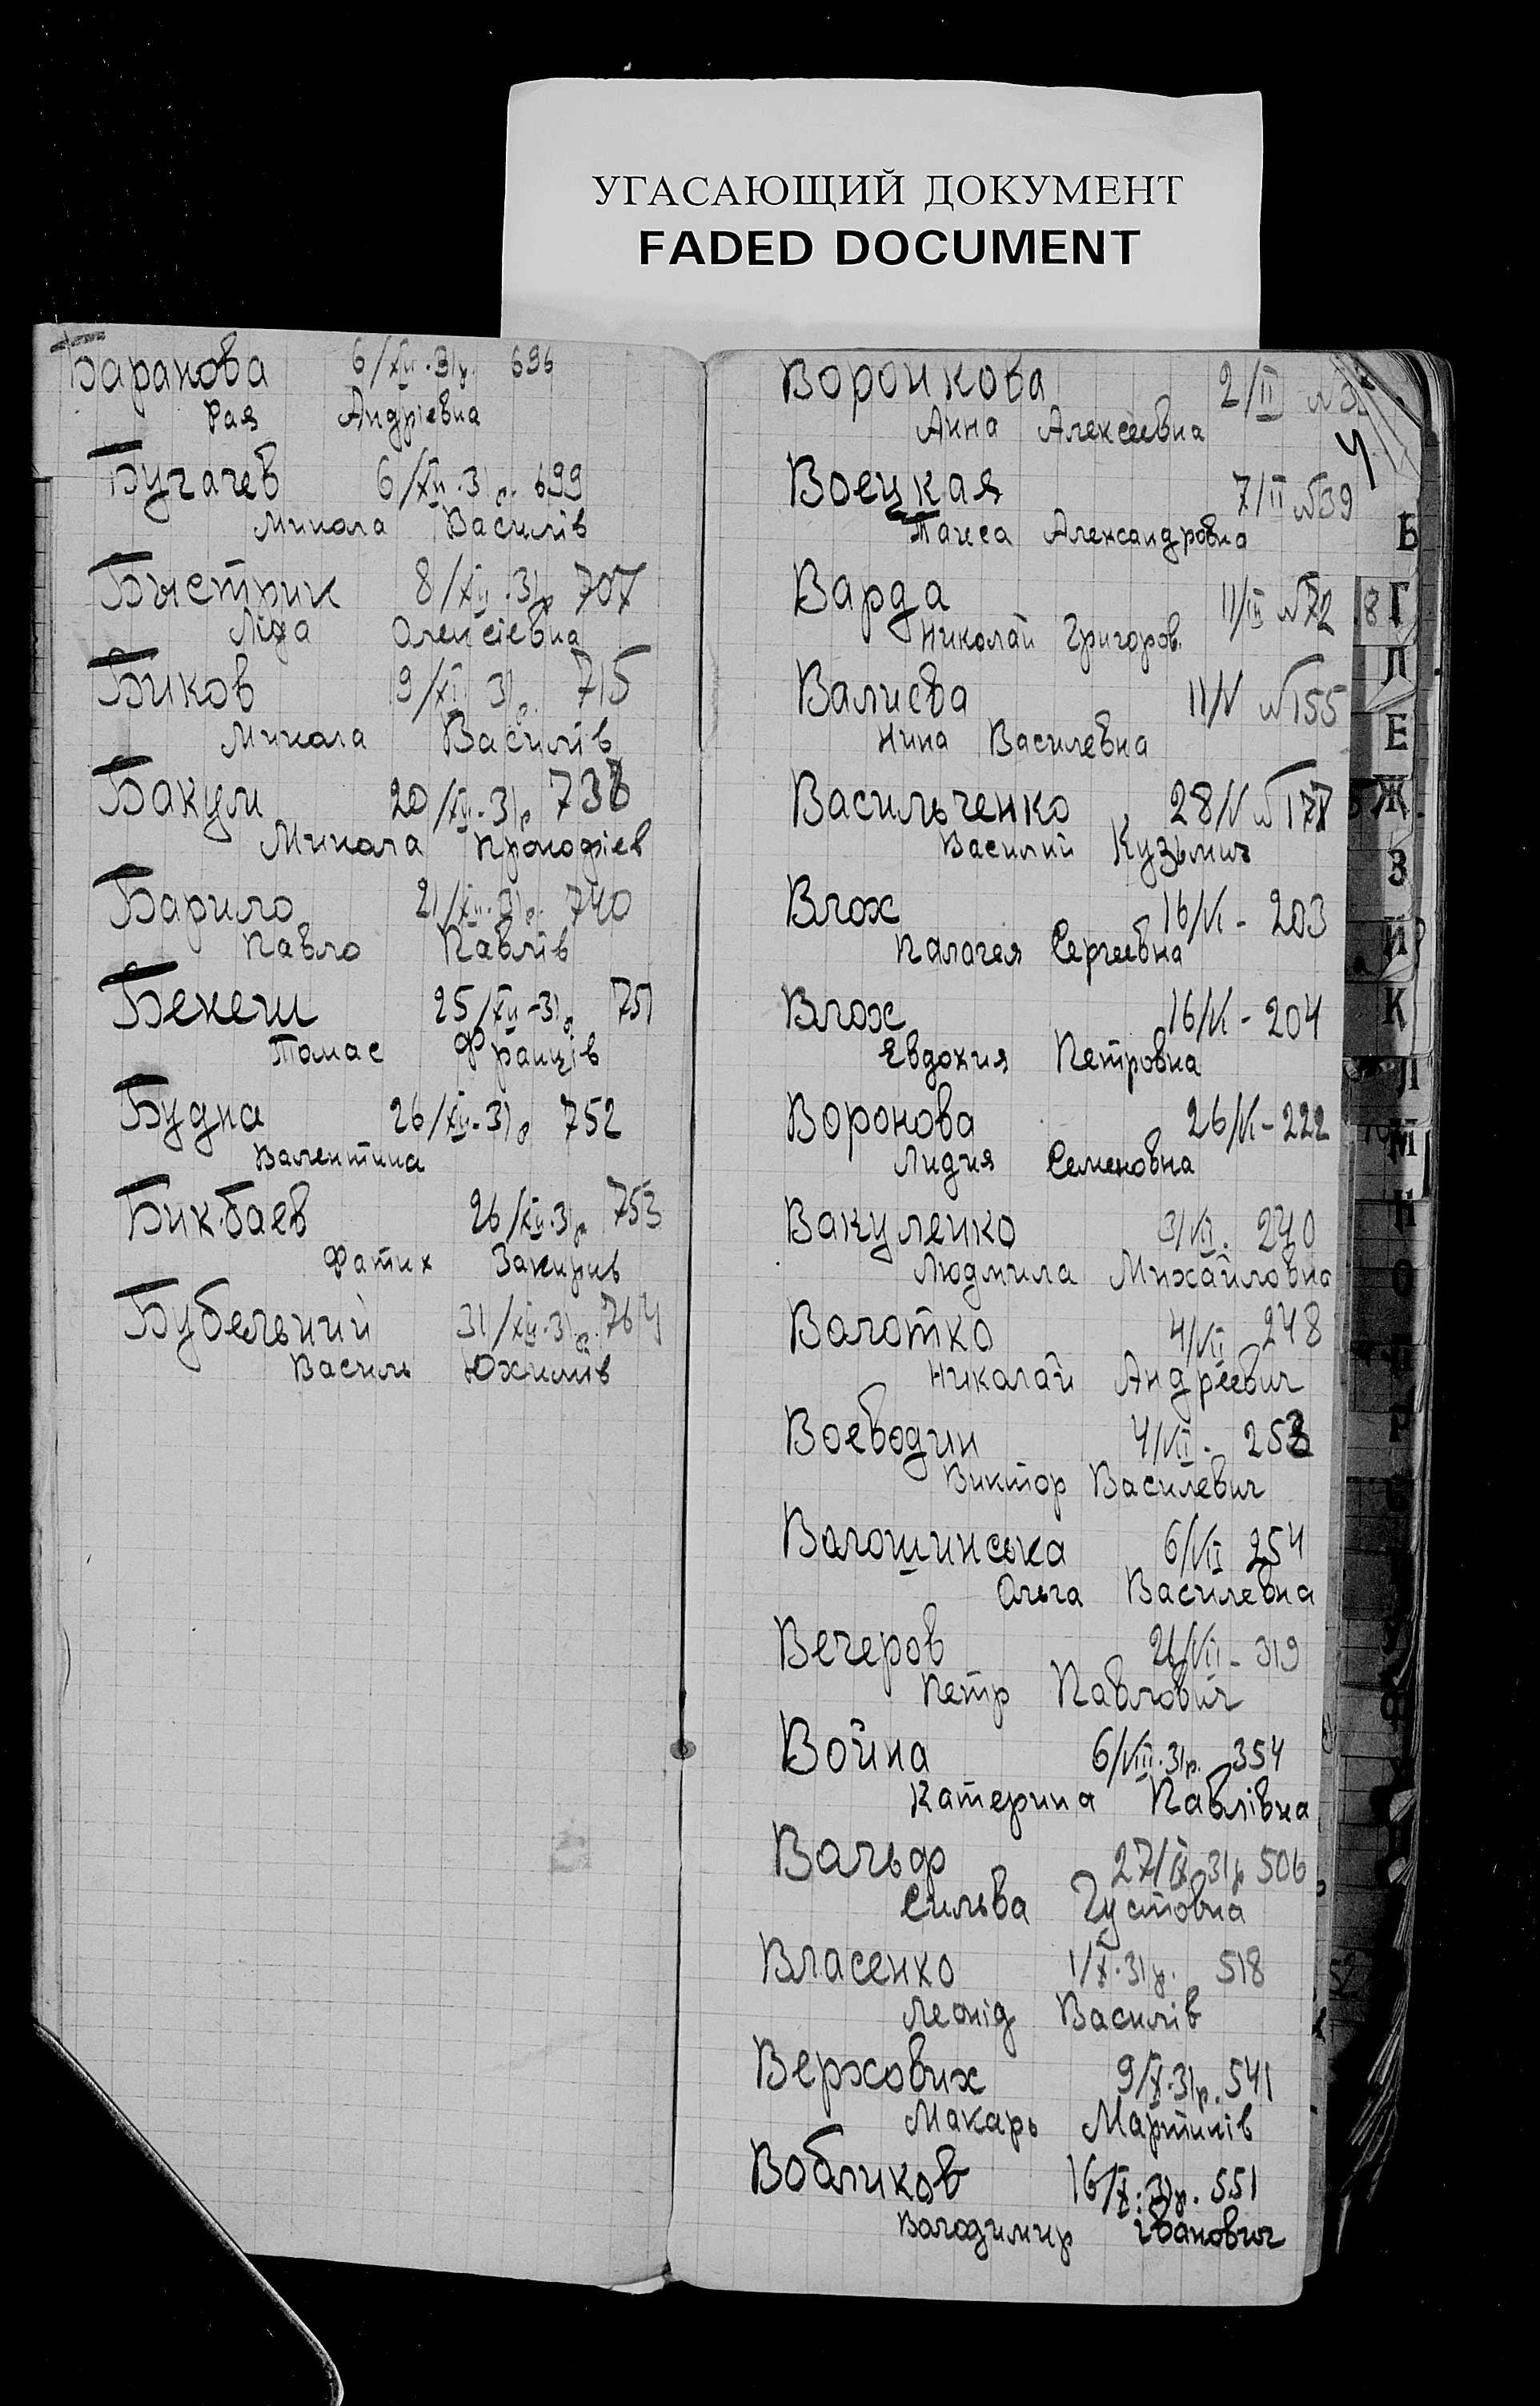 УГАСАЮЩИЙ ДОКУМЕНТ
FADED DOCUMENT
Баранова 6/XII.31р. 696
Рая Андріевна
Бугачев 6/XII.31р. 699
Микола Василів
Быстрик 8/XII.31р 707
Ліда Олексіевна
Биков 9/XII 31р. 715
Микола Василів
Бакум 20/XII-31р 738
Микола Прокофіев
Барило 21/XII.31р. 740
Павло Павлів
Бекеш 25/XII-31р 751
Томас Франців
Будна 26/XII-31р 752
Валентина
Бикбаев 26/XII.31р 753
Фатих Закирив
Бубельний 31/XII.31р. 764
Василь Юхимів
Воронкова 2/II
Анна Алексеевна
4
Воецкая 7/II №39
Таиса Александровна
Варда 11/III №72
Николай Григоров.
Валиева 11/V №155
Нина Василевна
Васильченко 28/V №177
Василий Кузьмич
Влох 16/VI - 203
Палагея Сергеевна
Влох 16/VI - 204
Евдокия Петровна
Воронова 26/VI - 222
Лидия Семеновна
Вакуленко 3/VII. 240
Людмила Михайловна
Валотко 4/VII 248
Николай Андреевич
Воеводин 4/VII. 253
Виктор Василевич
Волошинська 6/VII 254
Ольга Василевна
Вечеров 26/VII - 319
Петр Павлович
Война 6/VIII.31р. 354
Катерина Павлівна
Вальф 27/IX 31р 506
Сильва Густовна
Власенко 1/X.31р. 518
Леонід Василів
Верхових 9/X.31р. 541
Макарь Мартинів
Вобликов 16/X.31р. 551
Володимир Іванович
Б
Г
Е
Ж
З
И
К
Л
М
Н
О
П
Р